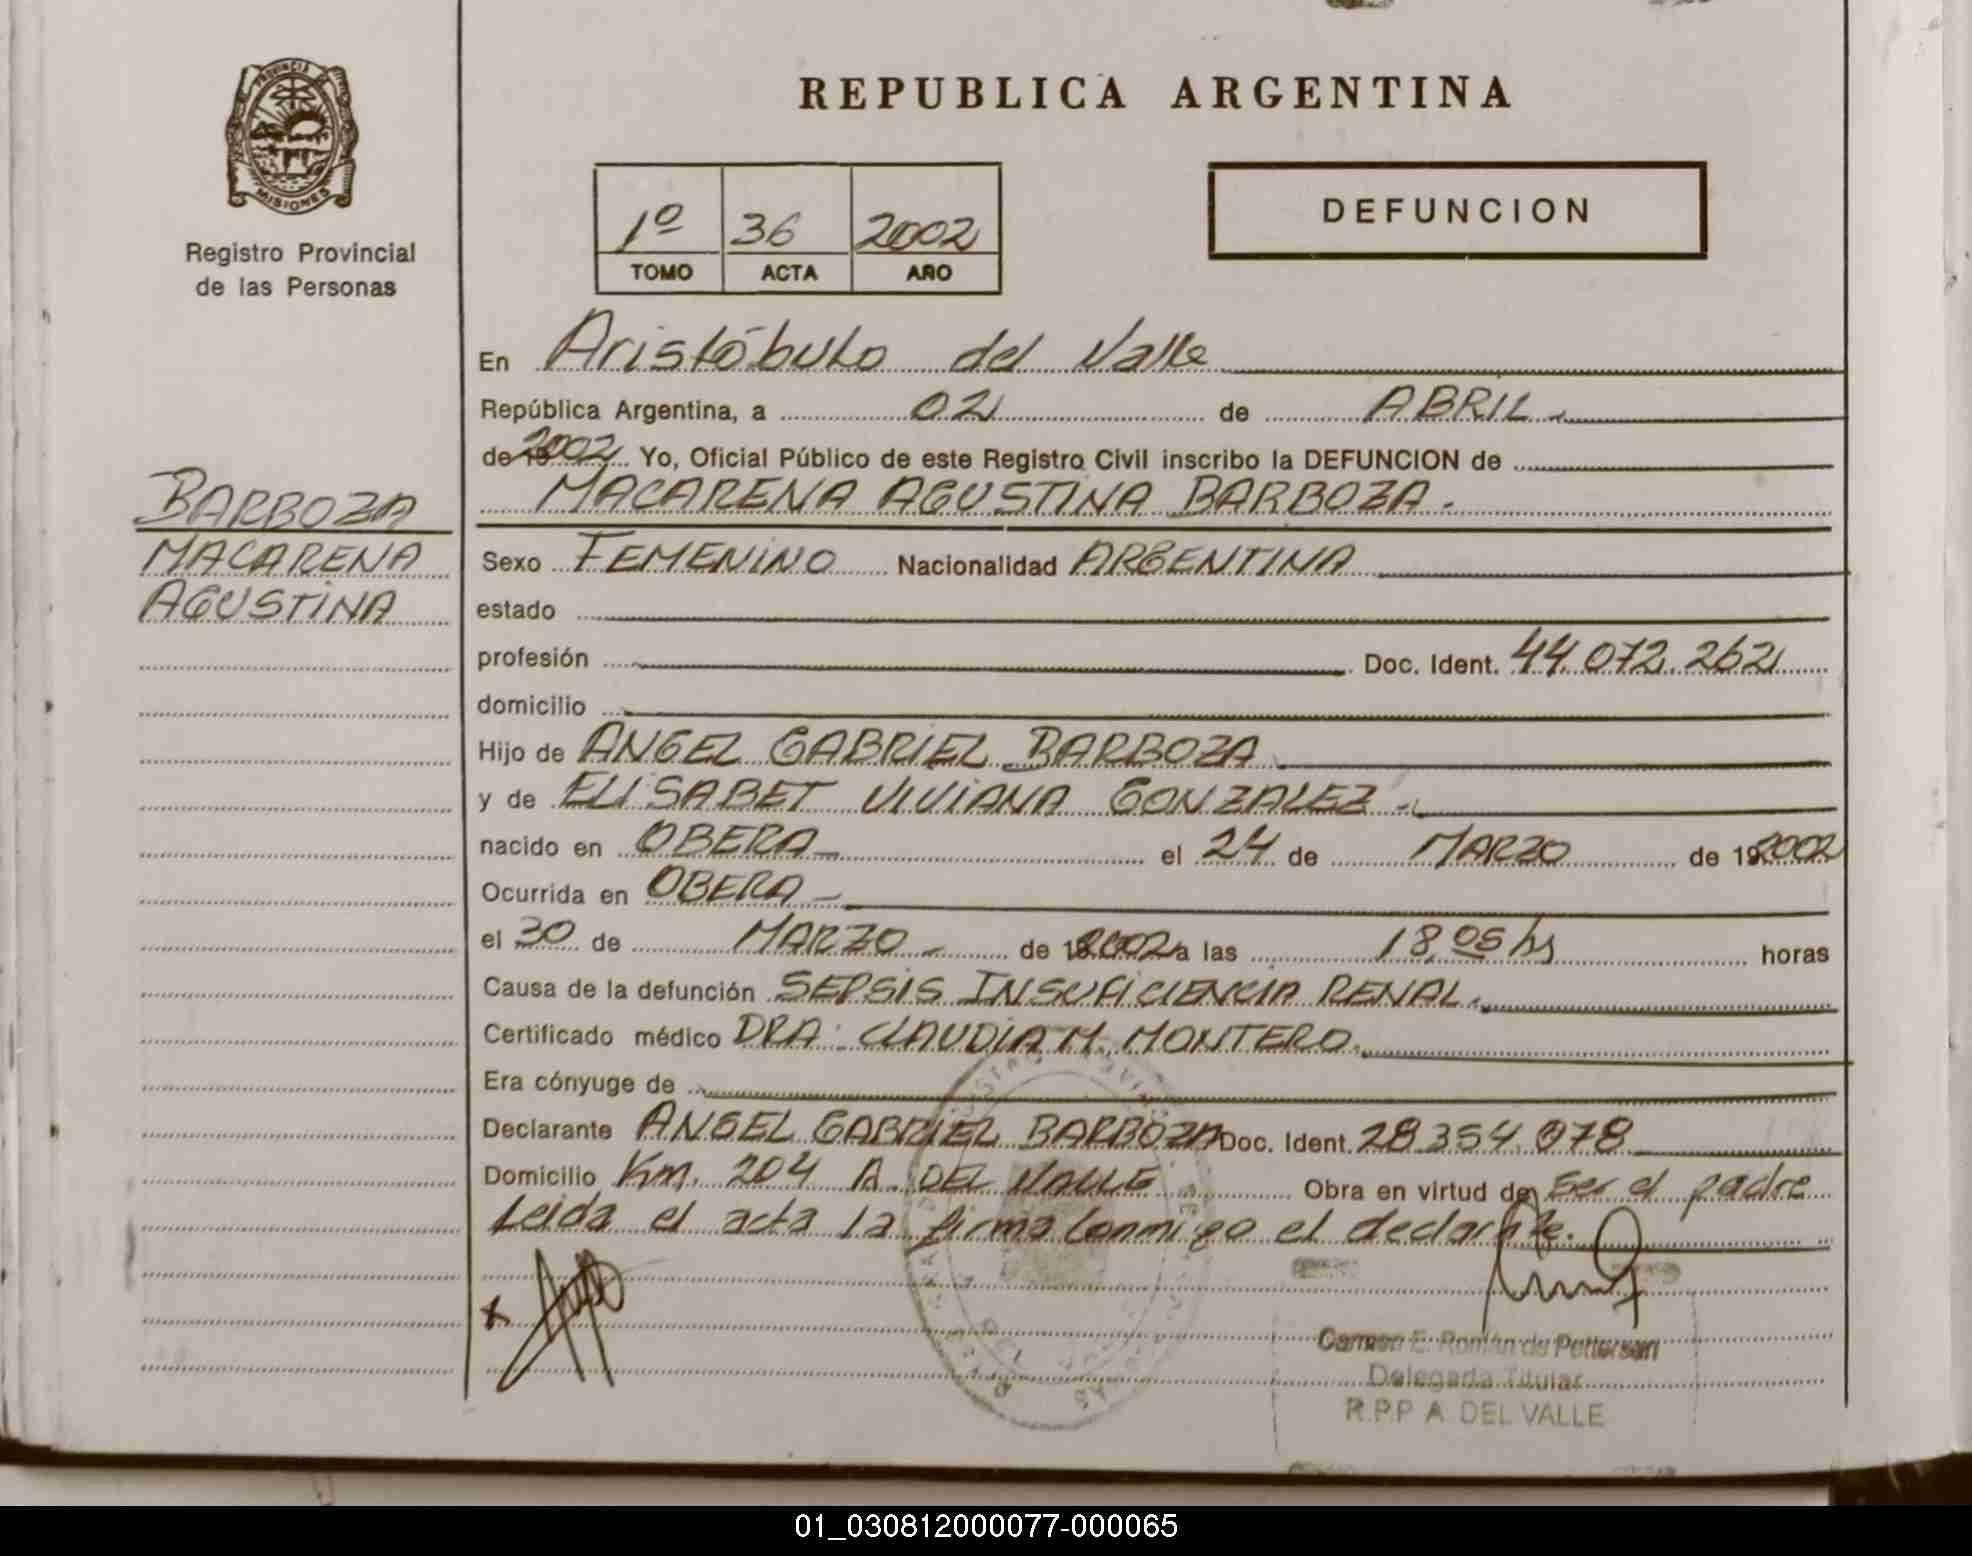 PROVINCIA DE
MISIONES
Registro Provincial
de las Personas
REPUBLICA ARGENTINA
1º 36 2002
TOMO ACTA AÑO
DEFUNCION
En Aristóbulo del Valle
República Argentina, a 02 de ABRIL
de 2002 Yo, Oficial Público de este Registro Civil inscribo la DEFUNCION de
MACARENA AGUSTINA BARBOZA.
BARBOZA
MACARENA
AGUSTINA
Sexo FEMENINO Nacionalidad ARGENTINA
estado
profesión Doc. Ident. 44.072.262
domicilio
Hijo de ANGEL GABRIEL BARBOZA
y de ELISABET VIVIANA GONZALEZ.
nacido en OBERA el 24 de MARZO de 192002
Ocurrida en OBERA
el 30 de MARZO de 2002 a las 18,05 hs horas
Causa de la defunción SEPSIS INSUFICIENCIA RENAL.
Certificado médico DRA. CLAUDIA M. MONTERO.
Era cónyuge de
Declarante ANGEL GABRIEL BARBOZA Doc. Ident. 28.354.078
Domicilio Km. 204 A. DEL VALLE Obra en virtud de ser el padre
Leida el acta la firma conmigo el declarante.
x
Carmen E. Román de Pettersen
Delegada Titular
R.P.P A DEL VALLE
01_030812000077-000065